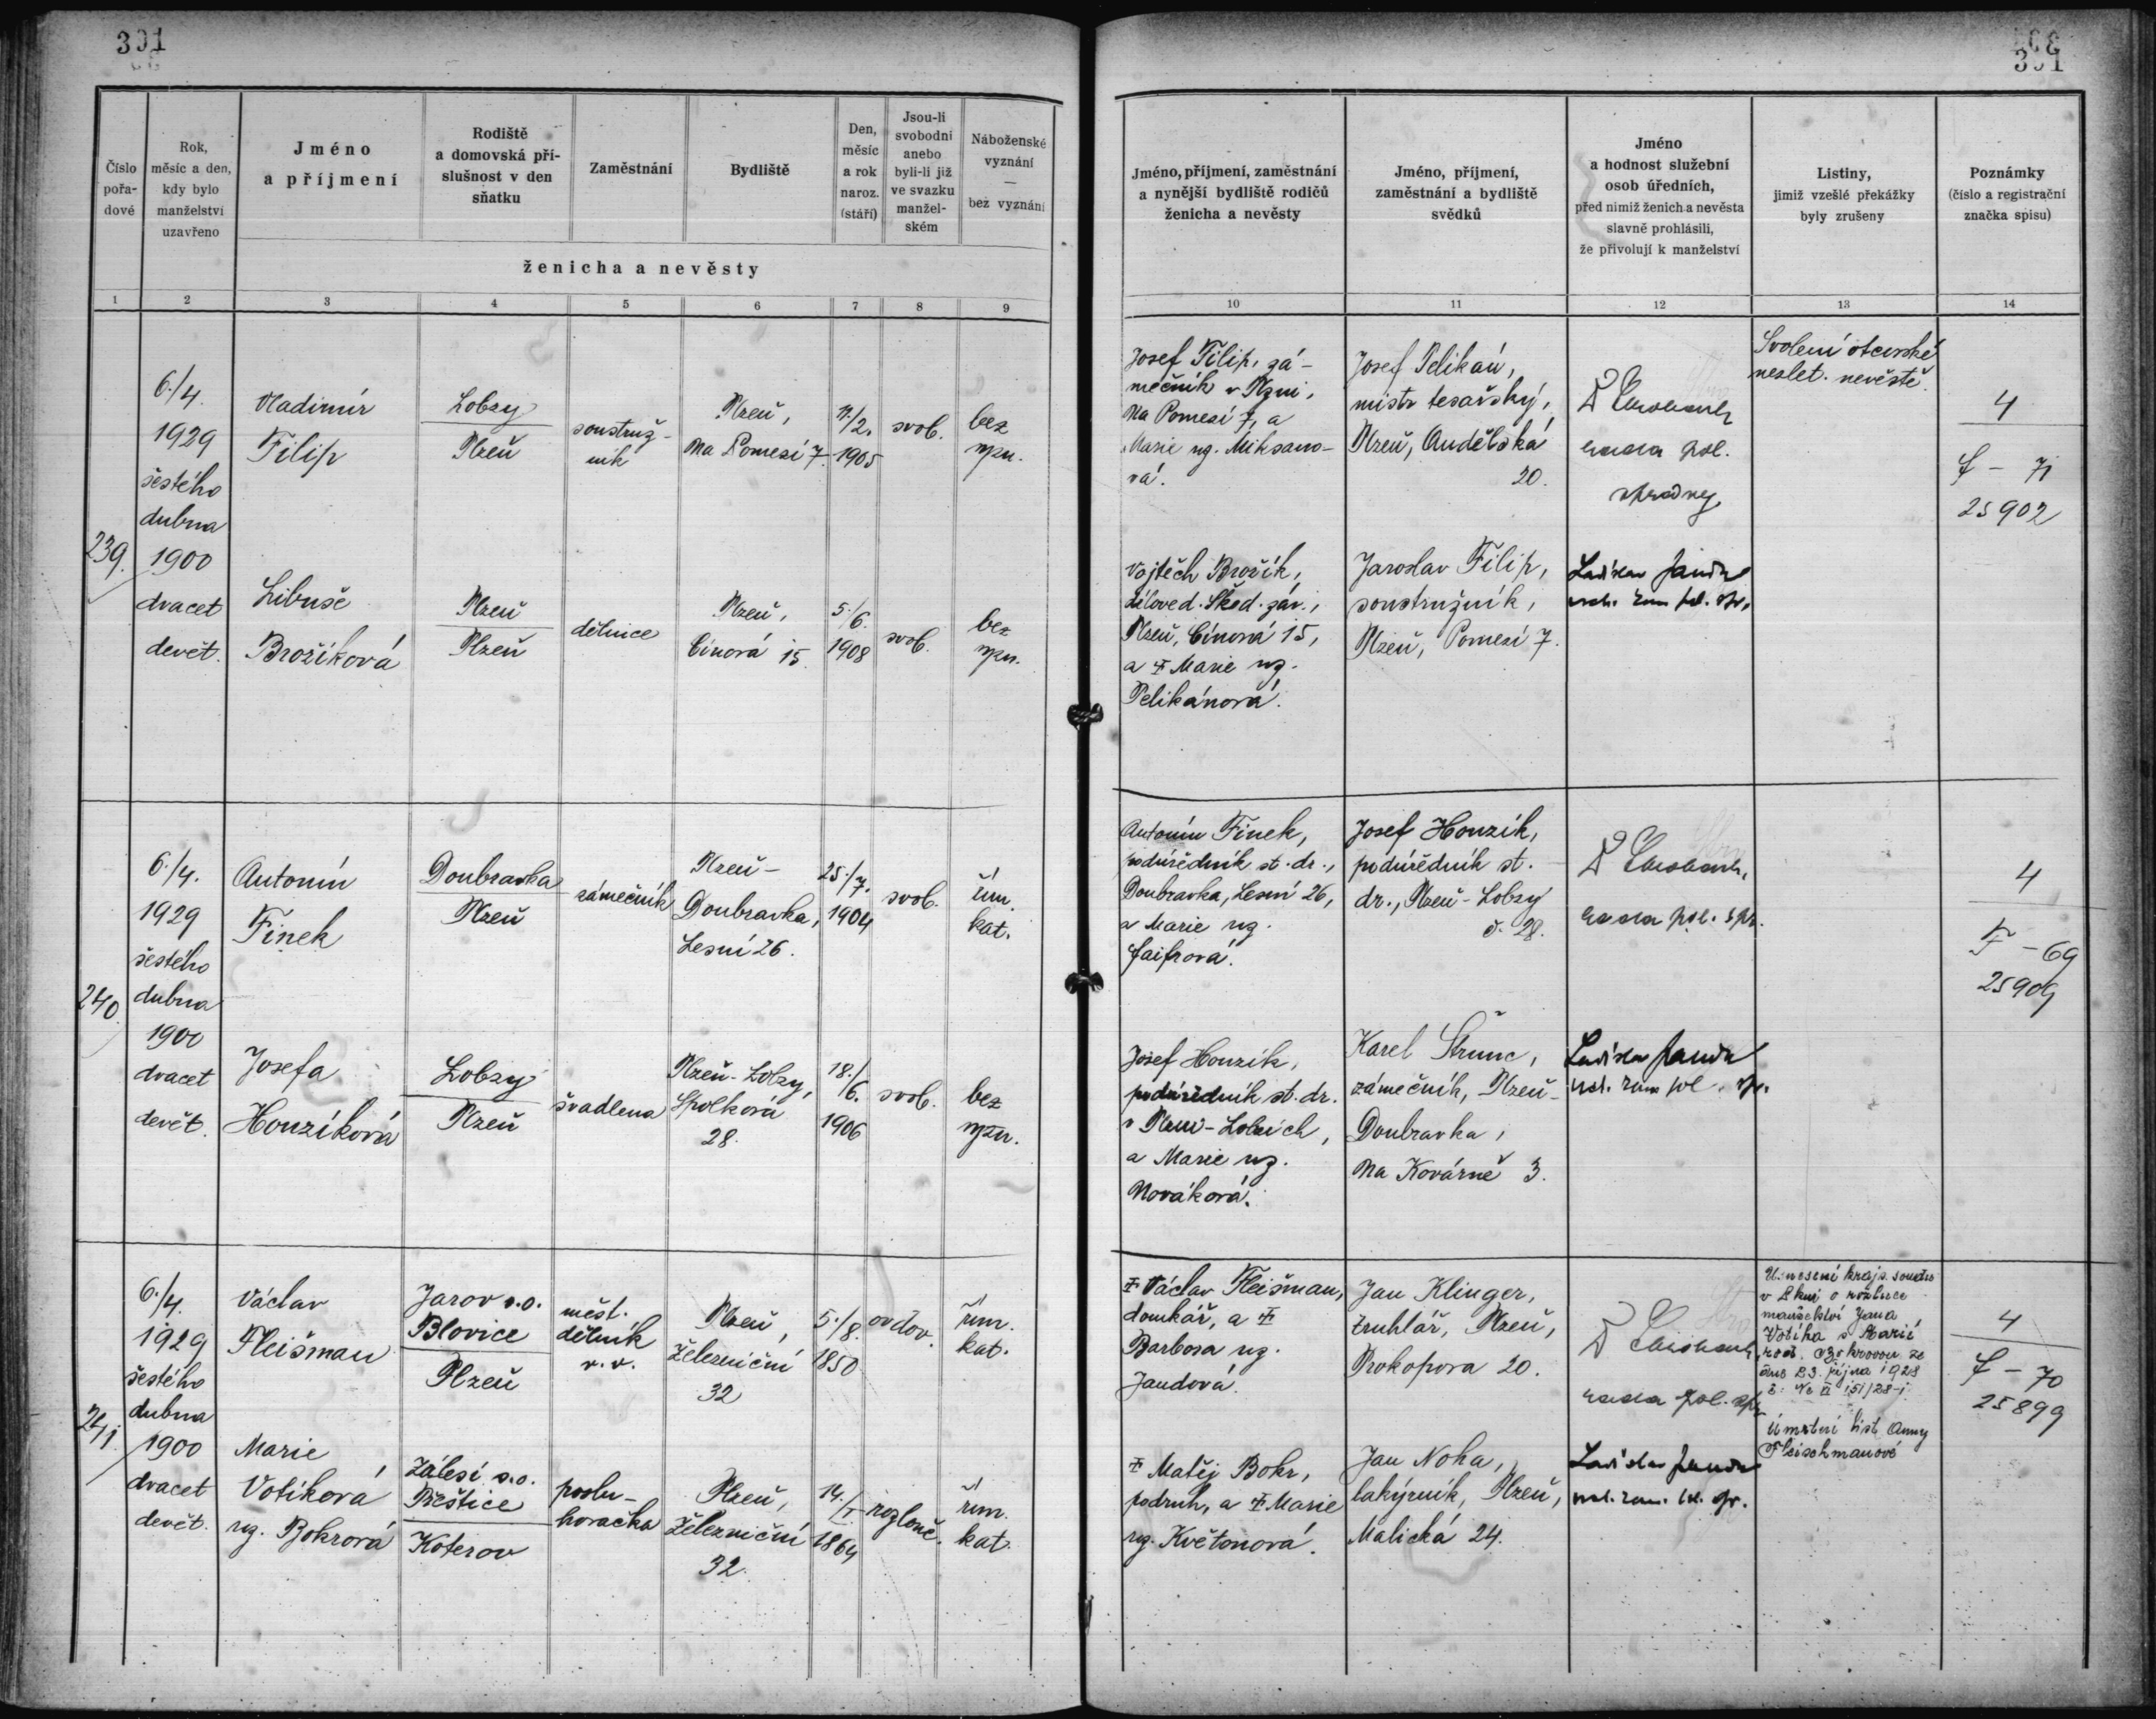 301
301
Číslo pořadové
Rok, měsíc a den, kdy bylo manželství uzavřeno
Jméno a příjmení
Rodiště a domovská příslušnost v den sňatku
Zaměstnání
Bydliště
Den, měsíc a rok naroz. (stáří)
Jsou-li svobodní anebo byli-li již ve svazku manželském
Náboženské vyznání — bez vyznání
ženicha a nevěsty
Jméno, příjmení, zaměstnání a nynější bydliště rodičů ženicha a nevěsty
Jméno, příjmení, zaměstnání a bydliště svědků
Jméno a hodnost služební osob úředních, před nimiž ženich a nevěsta slavně prohlásili, že přivolují k manželství
Listiny, jimiž vzešlé překážky byly zrušeny
Poznámky (číslo a registrační značka spisu)
1 2 3 4 5 6 7 8 9 10 11 12 13 14
239.
6./4.
1929
šestého
dubna
1900
dvacet
devět.
Vladimír
Filip
Lobzy
Plzeň
soustruž-
ník
Plzeň,
Na Pomezí 7.
11./2.
1905
svob.
bez
vyzn.
Josef Filip, zá-
mečník v Plzni,
Na Pomezí 7, a
Marie roz. Miksano-
vá.
Josef Pelikán,
mistr tesařský,
Plzeň, Andělská
20.
rada pol.
správy
Svolení otcovské
nezlet. nevěstě.
4
f - 71
25902
Libuše
Brožíková
Plzeň
Plzeň
dělnice
Plzeň,
Cínová 15.
5./6.
1908
svob.
bez
vyzn.
Vojtěch Brožík,
díloved. Škod. záv.,
Plzeň, Cínová 15,
a Marie roz.
Pelikánová.
Jaroslav Filip,
soustružník,
Plzeň, Pomezí 7.
Ladislav Janda
240.
6./4.
1929
šestého
dubna
1900
dvacet
devět.
Antonín
Finek
Doubravka
Plzeň
zámečník
Plzeň -
Doubravka,
Lesní 26.
25./7.
1904
svob.
řím.
kat.
Antonín Finek,
podúředník st. dr.,
Doubravka, Lesní 26,
a Marie roz.
Faifrová.
Josef Houzík,
podúředník st.
dr., Plzeň - Lobzy
č. 28.
rada pol. spr.
4
F - 69
25909
Josefa
Houzíková
Lobzy
Plzeň
švadlena
Plzeň - Lobzy,
Spolková
28.
18./6.
1906
svob.
bez
vyzn.
Josef Houzík,
podúředník st. dr.
v Plzni - Lobzích,
a Marie roz.
Nováková.
Karel Štrunc,
zámečník, Plzeň -
Doubravka,
Na Kovárně 3.
Ladislav Janda
241.
6./4.
1929
šestého
dubna
1900
dvacet
devět.
Václav
Fleišman
Jarov s.o.
Blovice
Plzeň
měst.
dělník
v. v.
Plzeň,
Železniční
32
5./8.
1850
ovdov.
řím.
kat.
Václav Fleišman,
domkář, a
Barbora roz.
Jandová.
Jan Klinger,
truhlář, Plzeň,
Prokopova 20.
rada pol. spr.
Usnesení krajs. soudu
v Plzni o rozluce
manželství Jana
Votíka s Marií
roz. Bokrovou ze
dne 23. října 1928
Úmrtní list Anny
Fleischmanové
4
f - 70
25899
Marie
Votíková
roz. Bokrová
Zálesí s.o.
Přeštice
Koterov
poslu-
hovačka
Plzeň,
Železniční
32.
14./I.
1864
rozlouč.
řím.
kat.
Matěj Bokr,
podruh, a Marie
roz. Květonová.
Jan Noha,
lakýrník, Plzeň,
Malická 24.
Ladislav Janda